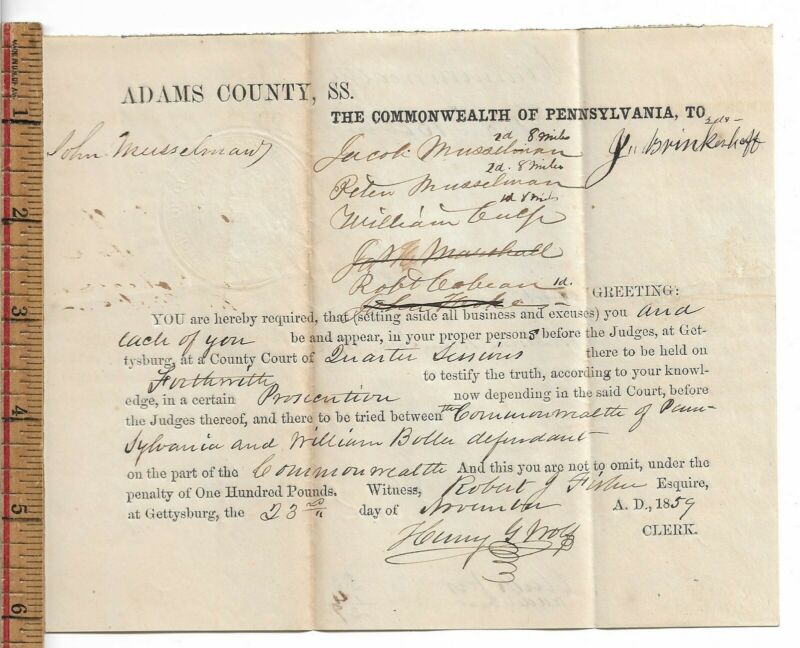 ADAMS COUNTY, SS.
THE COMMONWEALTH OF PENNSYLVANIA, TO
John Musselman
2d 8 miles
Jacob Musselman
Brinkerhoff
2d. 8 miles
Peter Musselman
1d 8 mils
William Culp
Marshall
Robt Cobean 1d.
GREETING:
YOU are hereby required, that (setting aside all business and excuses) you and
each of you be and appear, in your proper persons before the Judges, at Get-
tysburg, at a County Court of Quarter Sessions there to be held on
Forthwith to testify the truth, according to your knowl-
edge, in a certain Prosecution now depending in the said Court, before
the Judges thereof, and there to be tried between the Commonwealth of Penn-
sylvania and William Boller defendant
on the part of the Commonwealth And this you are not to omit, under the
penalty of One Hundred Pounds. Witness, Robert J Fisher Esquire,
at Gettysburg, the 23rd day of November A. D., 1859
Henry G Wolf
CLERK.
1
2
3
4
5
6